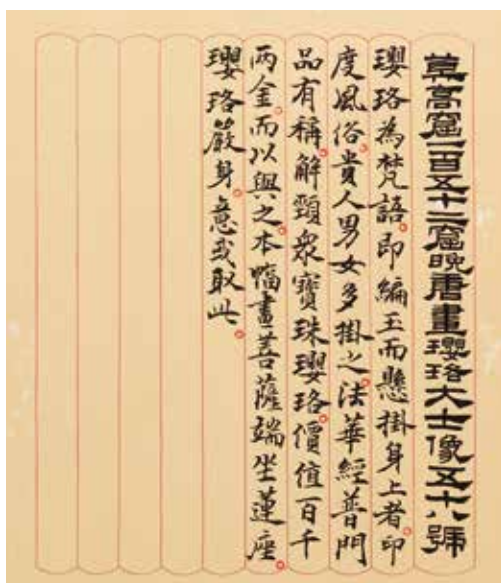 莫高窟一百五十二窟晚唐畫瓔珞大士像五十八號
瓔珞為梵語。即編玉而懸掛身上者。印
度風俗。貴人男女多掛之。法華經普門
品有稱。解頸衆寶珠瓔珞。價值百千
兩金。而以與之。本幅畫菩薩端坐蓮座。
瓔珞嚴身。意或取此。